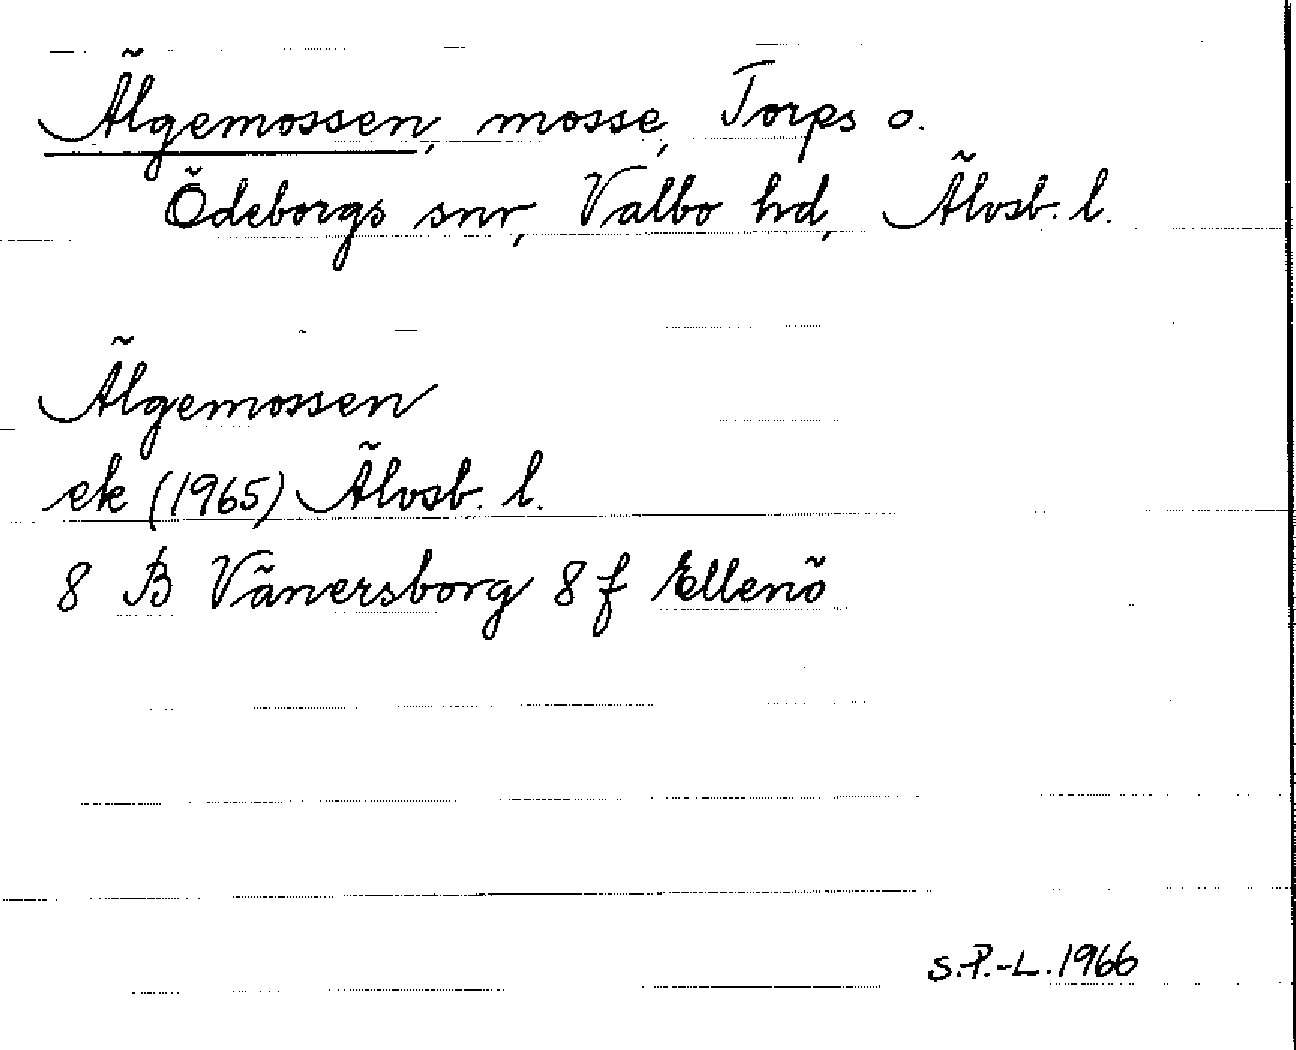 Älgemossen, mosse, Torps o.
Ödeborgs snr, Valbo hd, Älvsb. l.
Älgemossen
ek (1965) Älvsb. l.
8 B Vänersborg 8 f Ellenö
S.P.-L. 1966